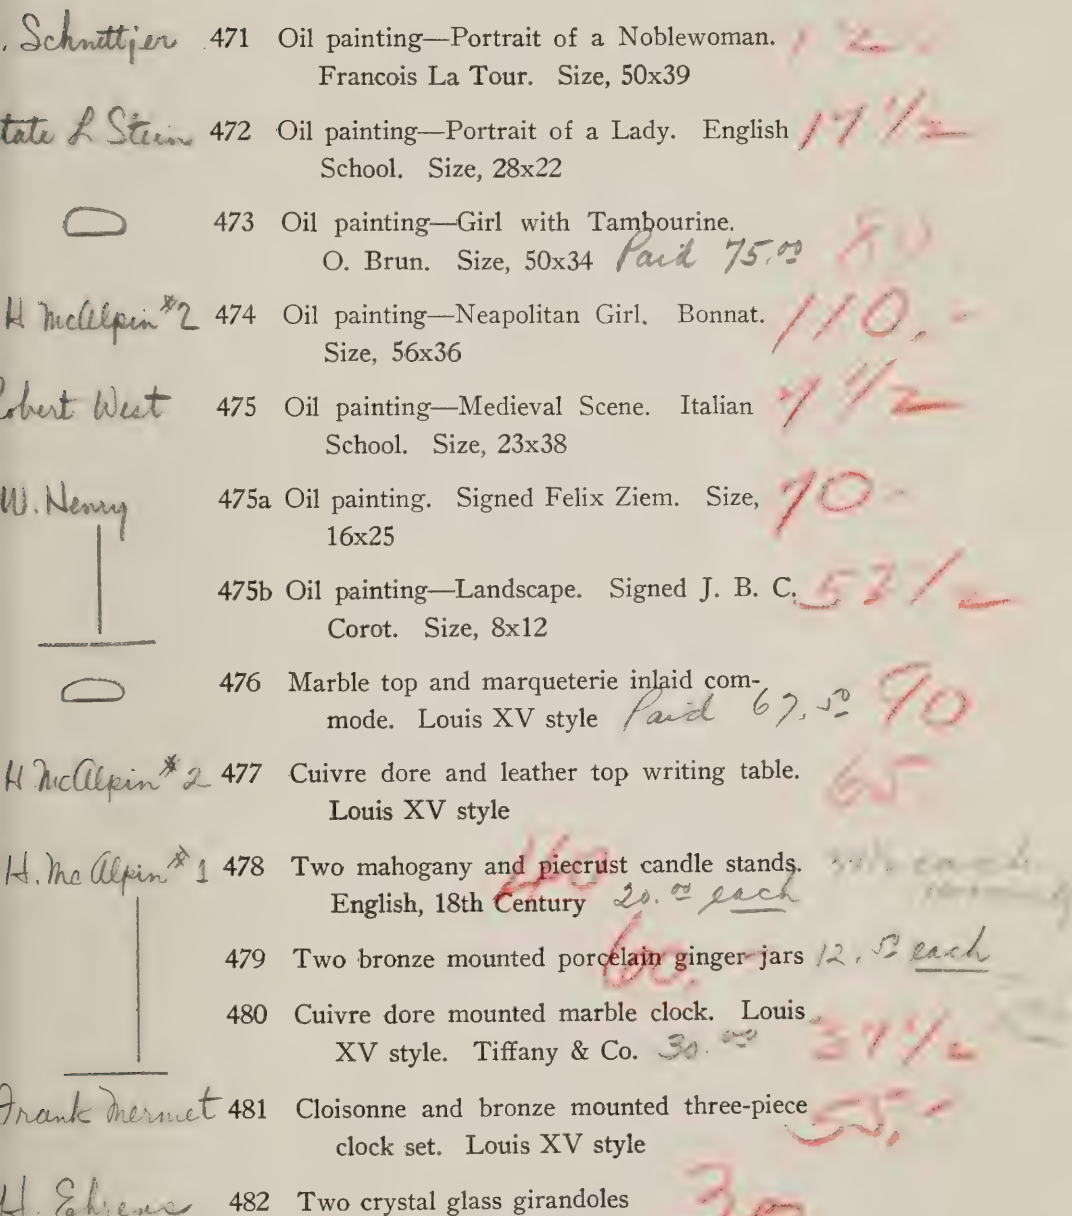 . Schnittjer 471 Oil painting—Portrait of a Noblewoman.
Francois La Tour. Size, 50x39
tate L Stein 472 Oil painting—Portrait of a Lady. English 17 1/2
School. Size, 28x22
473 Oil painting—Girl with Tambourine. 80
O. Brun. Size, 50x34 Paid 75.00
H McAlpin #2 474 Oil painting—Neapolitan Girl. Bonnat. 110.-
Size, 56x36
obert West 475 Oil painting—Medieval Scene. Italian
School. Size, 23x38
W. Henry 475a Oil painting. Signed Felix Ziem. Size,
16x25
475b Oil painting—Landscape. Signed J. B. C.
Corot. Size, 8x12
476 Marble top and marqueterie inlaid com- 90
mode. Louis XV style Paid 67.50
H McAlpin #2 477 Cuivre dore and leather top writing table. 65
Louis XV style
H. McAlpin #1 478 Two mahogany and piecrust candle stands.
English, 18th Century 20.00 each
479 Two bronze mounted porcelain ginger jars 12.50 each
60.-
480 Cuivre dore mounted marble clock. Louis
XV style. Tiffany & Co. 30.00 37 1/2
Frank Mermet 481 Cloisonne and bronze mounted three-piece 55.-
clock set. Louis XV style
H. 482 Two crystal glass girandoles 30